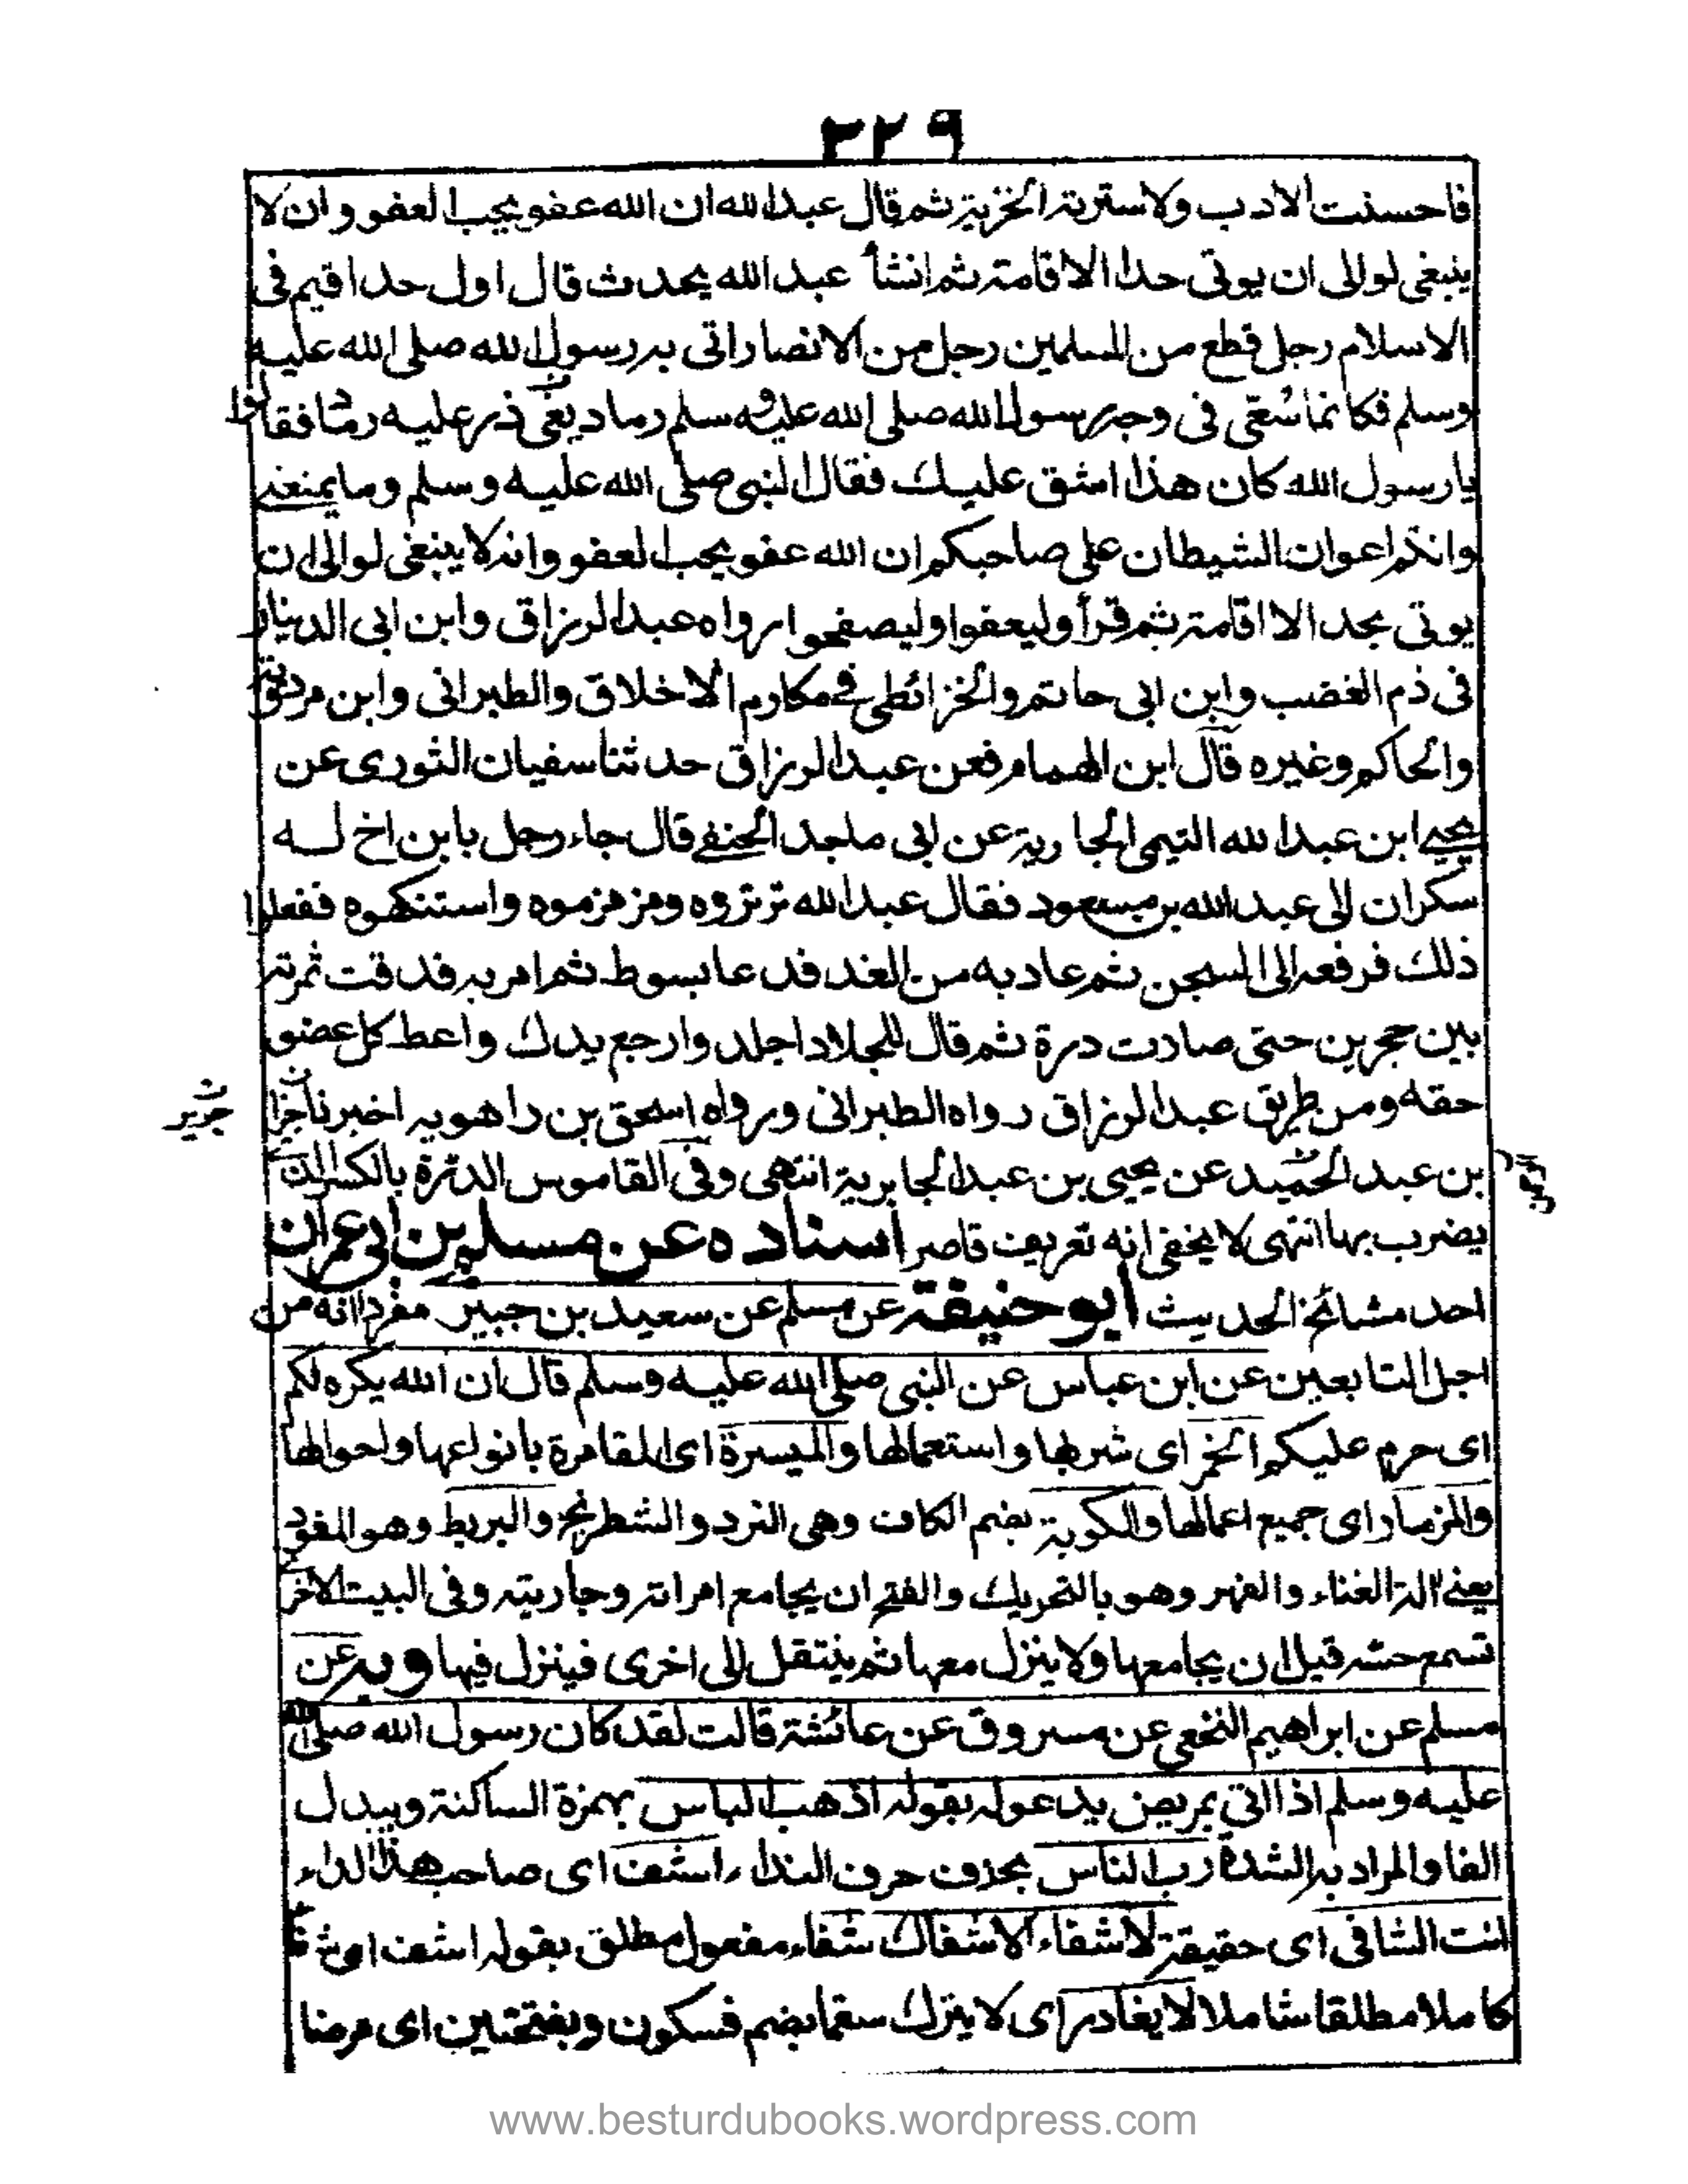 ٢٢٩
فاحسنت الادب ولاسترته الخزية ثم قال عبد الله ان الله عفو يحب العفو وان لا
ينبغى لوالى ان يوتى حدا الا اقامته ثم انشأ عبد الله يحدث قال اول حد اقيم فى
الاسلام رجل قطع من المسلمين رجل من الانصار اتى به رسول الله صلى الله عليه
وسلم فكانما سُقى فى وجه رسول الله صلى الله عليه وسلم رماد يعنى ذر عليه رمادا فقالوا
يا رسول الله كان هذا اشق عليك فقال النبى صلى الله عليه وسلم وما يمنعنى
وانتم اعوان الشيطان على صاحبكم ان الله عفو يحب العفو وانه لا ينبغى لوالى ان
يوتى بحد الا اقامته ثم قرأ وليعفوا وليصفحوا رواه عبد الرزاق وابن ابى الدنيا
فى ذم الغضب وابن ابى حاتم والخرائطى فى مكارم الاخلاق والطبرانى وابن مردويه
والحاكم وغيره قال ابن الهمام فعن عبد الرزاق حدثنا سفيان الثورى عن
يحيى ابن عبد الله التيمى الجا رية عن ابى ماجد الحنفى قال جاء رجل بابن اخ له
سكران الى عبد الله بن مسعود فقال عبد الله ترتروه ومزمزموه واستنكهوه ففعلوا
ذلك فرفعه الى السجن ثم عاد به من الغد فدعا بسوط ثم امر به فدقت ثمرته
بين حجرين حتى صادت درة ثم قال للجلاد اجلد وارجع يدك واعط كل عضو
حقه ومن طريق عبد الرزاق رواه الطبرانى ورواه اسحق بن راهويه اخبرنا
جرير
بن عبد الحميد عن يحيى بن عبد الجابرية انتهى وفى القاموس الدرة بالكسر التى
يضرب بها انتهى لا يخفى انه تعريف قاصر اسناده عن مسلم بن ابى عمران
احد مشائخ الحديث ابو حنيفة عن مسلم عن سعيد بن جبير مفردا انه من
اجل التابعين عن ابن عباس عن النبى صلى الله عليه وسلم قال ان الله يكره لكم
اى حرم عليكم الخمر اى شربها واستعمالها والميسرة اى المقامرة بانواعها واحوالها
والمزمار اى جميع اعمالها والكوبة بضم الكاف وهى النرد والشطرنج والبربط وهو العود
يعنى الة الغناء والفهر وهو بالتحريك والفتح ان يجامع امراته وجاريته وفى البيت الاخرى
تسمع حسه قيل ان يجامعها ولا ينزل معها ثم ينتقل الى اخرى فينزل فيها وبه عن
مسلم عن ابراهيم النخعى عن مسروق عن عائشة قالت لقد كان رسول الله صلى الله
عليه وسلم اذا اتى بمريض يدعو له بقوله اذهب الباس بهمزة الساكنة ويبدل
الفا والمراد به الشدة رب الناس بحذف حرف النداء، اشف اى صاحب هذا الداء
انت الشافى اى حقيقة لا شفاء الا شفاك شفاء مفعول مطلق بقوله اشف اى شفاء
كاملا مطلقا شاملا لا يغادر اى لا يترك سقما بضم فسكون وبفتحتين اى مرضا
www.besturdubooks.wordpress.com